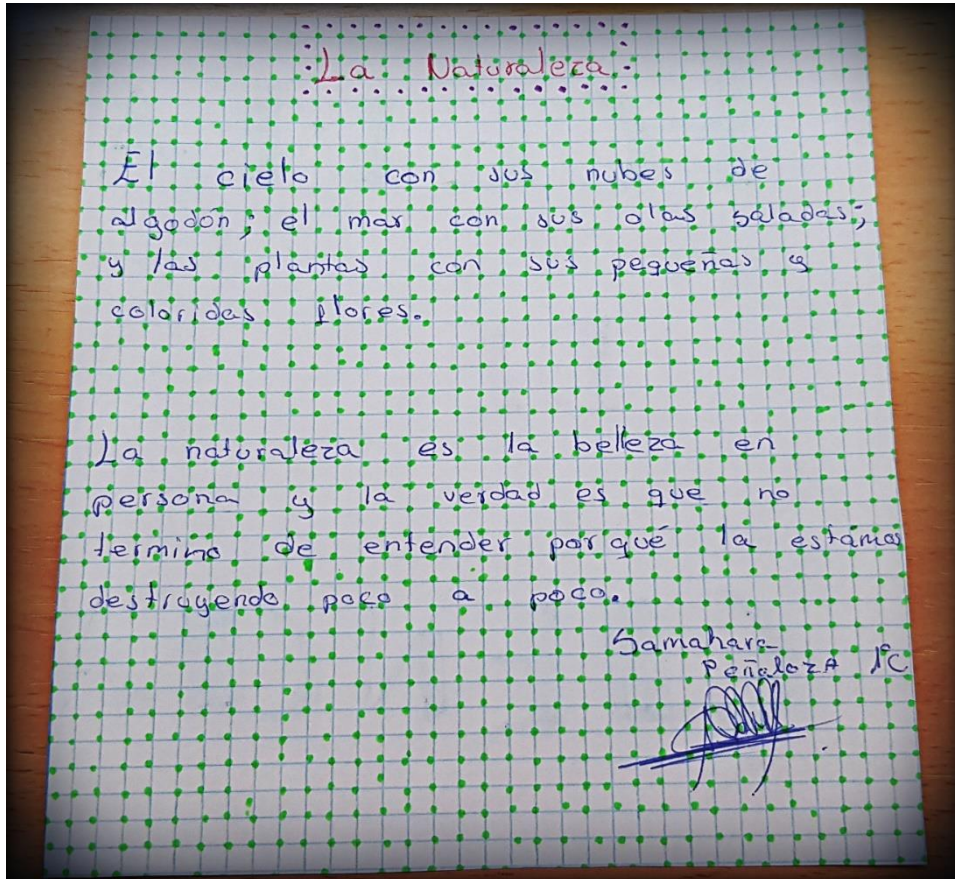 La Naturaleza
El cielo con sus nubes de
algodón; el mar con sus olas saladas;
y las plantas con sus pequeñas y
coloridas flores.
La naturaleza es la belleza en
persona y la verdad es que no
termino de entender por qué la estamos
destruyendo poco a poco.
Samahara
Peñaloza 1ºC